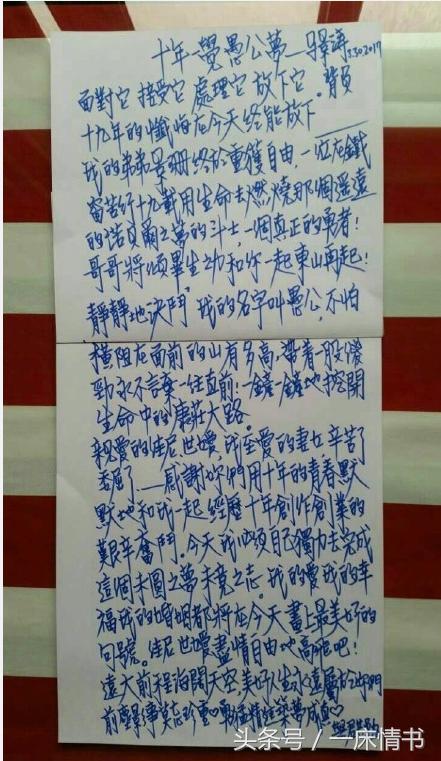 十年一覺愚公夢—
面對它 接受它 處理它 放下它。背負
十九年的懺悔在今天終能放下
我的弟弟景珊終於重獲自由,一位在鐵
窗苦行十九載用生命去燃燒那個遥遠
的諾貝爾之夢的斗士,一個真正的勇者!
哥哥將傾畢生之功和你一起東山再起!
靜靜地決鬥,我的名字叫愚公,不怕
橫阻在面前的山有多高,帶着一股傻
勁永不言棄一往直前,一鎬一鎬地挖開
生命中的康莊大路。
親愛的佳尼世嬡,我至愛的妻女,辛苦了
委屈了——感謝你們用十年的青春默
默地和我一起經歷十年創作創業的
艱辛奮鬥。今天我必須自己獨力去完成
這個未圓之夢未竟之志。我的愛我的幸
福我的婚姻都將在今天畫上最美好的
句號。佳尼世嬡盡情自由地高飛吧!
遠大前程海闊天空美好人生永遠屬於你們
前塵舊事莫忘珍重
头条号／一床情书